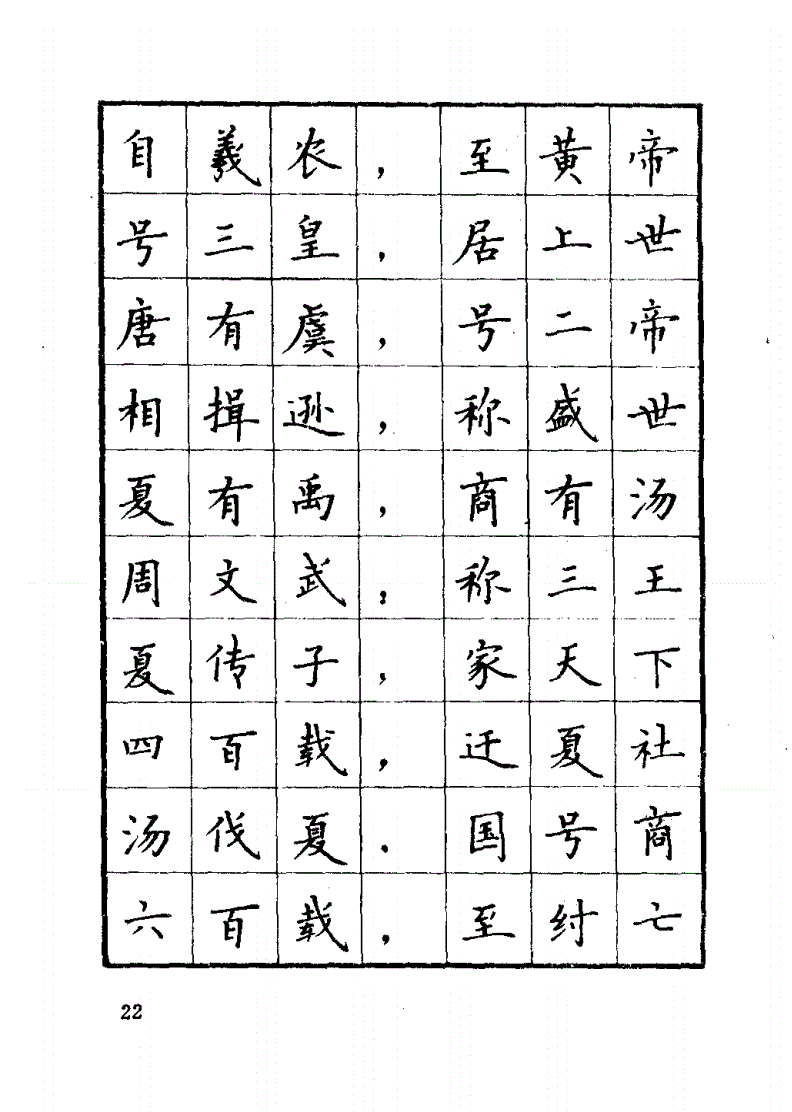 自羲农，至黄帝
号三皇，居上世
唐有虞，号二帝
相揖逊，称盛世
夏有禹，商有汤
周文武；称三王
夏传子，家天下
四百载，迁夏社
汤伐夏．国号商
六百载，至纣亡
22